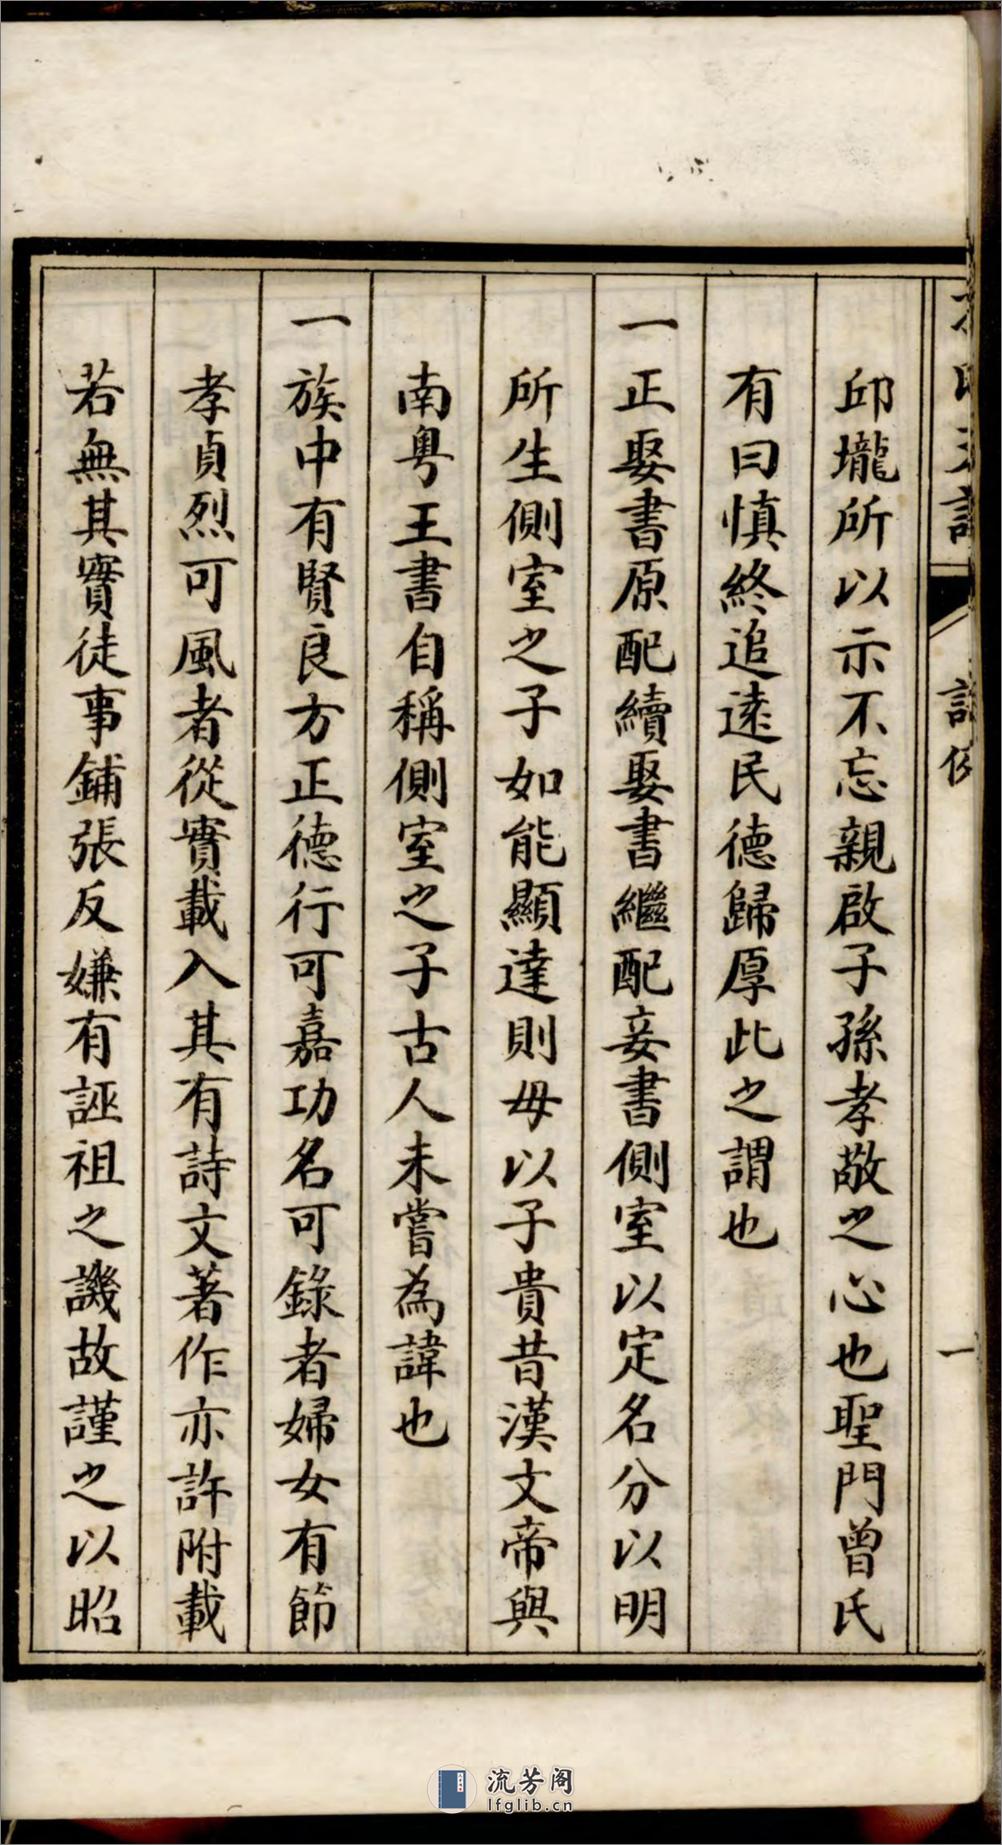 譜例
一
邱壠所以示不忘親啟子孫孝敬之心也聖門曾氏
有曰慎終追遠民德歸厚此之謂也
一正娶書原配續娶書繼配妾書側室以定名分以明
所生側室之子如能顯達則母以子貴昔漢文帝與
南粵王書自稱側室之子古人未嘗為諱也
一族中有賢良方正德行可嘉功名可錄者婦女有節
孝貞烈可風者從實載入其有詩文著作亦許附載
若無其實徒事鋪張反嫌有誣祖之譏故謹之以昭
流芳阁
lfglib.cn